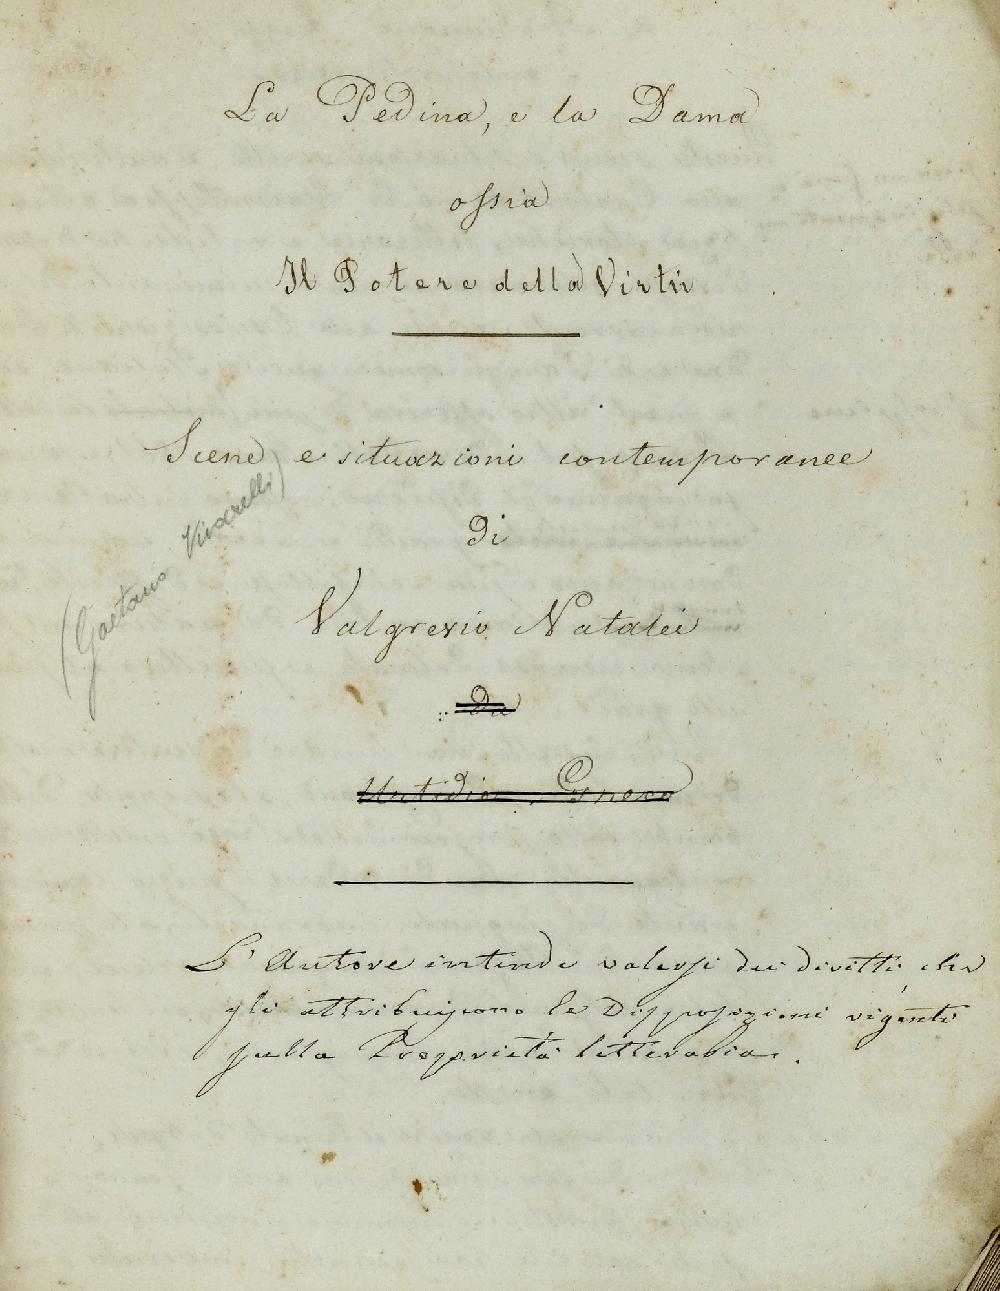 La Pedina, e la Dama
ossia
Il Potere della Virtù
Scene e situazioni contemporanee
(Gaetano Vivarelli)
di
Valgresio Natalei
da
L'Autore intende valersi dei diritti che
gli attribuiscono le Disposizioni vigenti
sulla Proprietà letteraria.